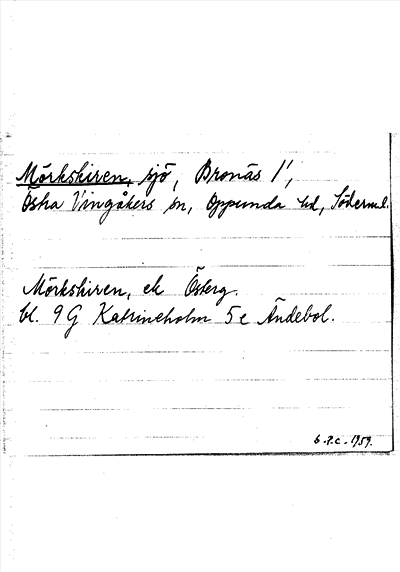 Mörkskiren, sjö, Bronäs 1',
Östra Vingåkers sn, Oppunda hd, Söderml.
Mörkskiren, ek Österg.
bl. 9 G Katrineholm 5 e Ändebol.
1959.